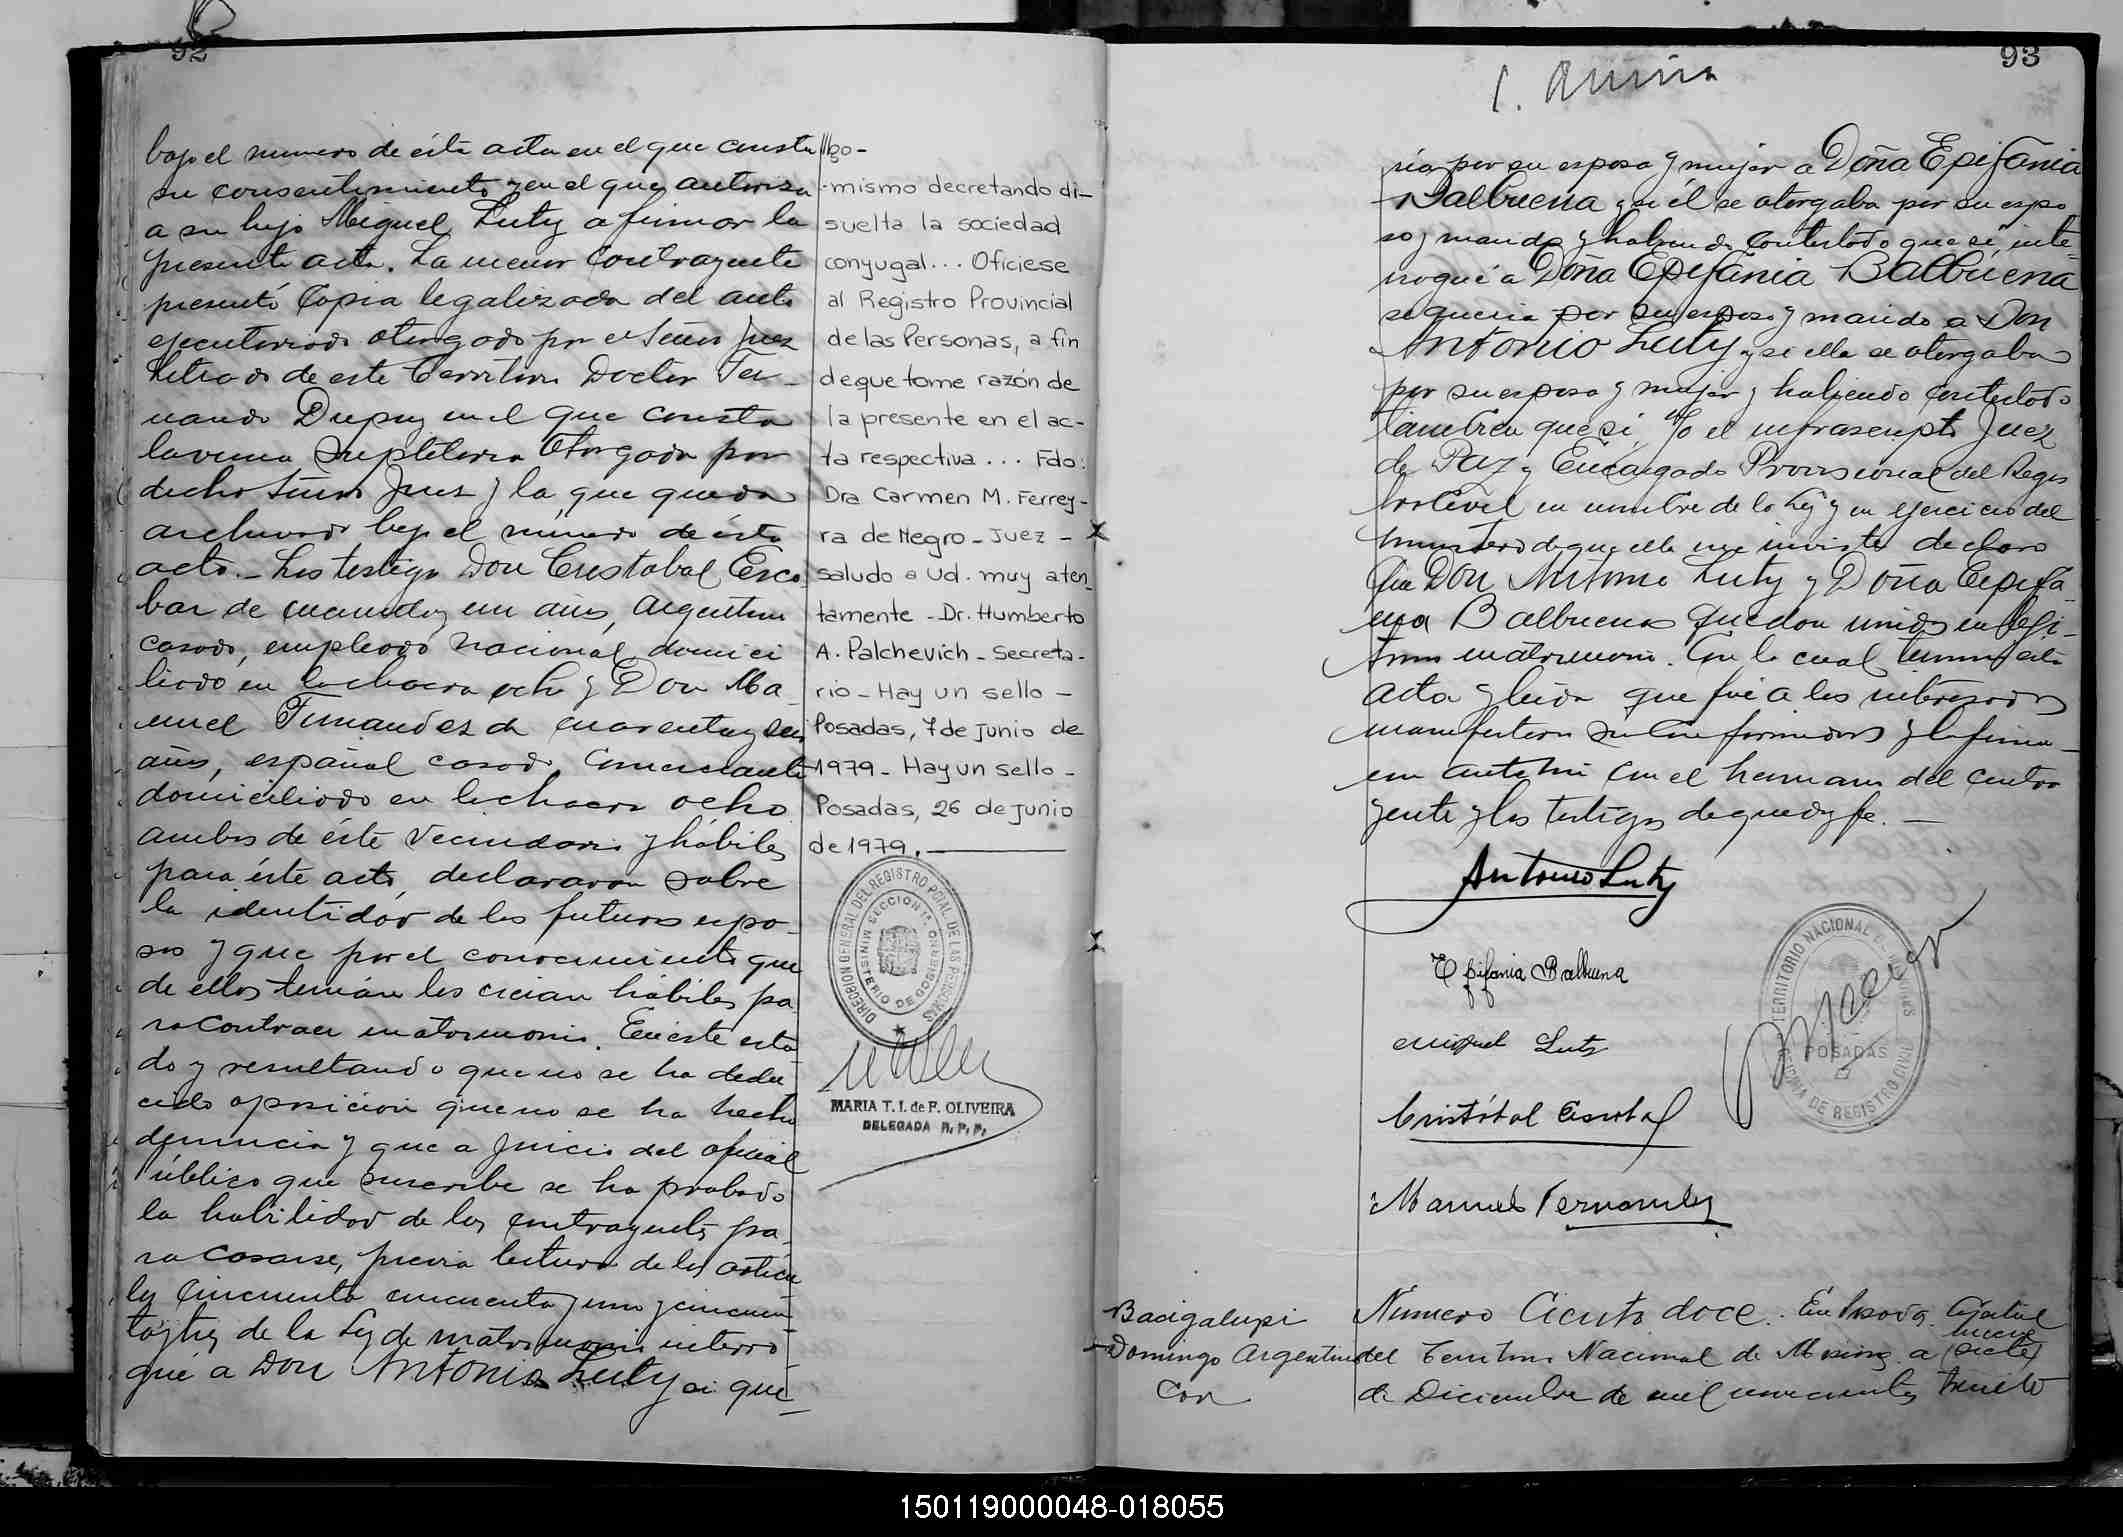 92
bajo el numero de ésta acta en el que consta
su consentimiento y en el que autorisa
a su hijo Miguel Luty a firmar la
presente acta. La menor contrayente
presentó Copia legalizada del auto
ejecutoriado otorgado por el Señor Juez
Letrado de este Territorio Doctor Fer-
nando Dupuy en el que consta
la venia supletoria otorgada por
dicho Señor Juez y la que queda
archivada bajo el número de ésta
acta.- Los testigos Don Cristobal Esco
bar de cuarenta y un años, argentino
casado, empleado nacional domici
liado en la chacra ocho y Don Ma-
nuel Fernandez de cuarenta y seis
años, español casado, Comerciante
domiciliado en la chacra ocho
ambos de éste vecindario y hábiles
para éste acto, declararon sobre
la identidad de los futuros espo-
sos y que por el conocimiento que
de ellos tenían los creian hábiles pa
ra contraer matrimonio. En este esta
do y resultando que no se ha dedu
cido oposicion que no se ha hecho
denuncia y que a juicio del oficial
Público que suscribe se ha probado
la habilidad de los contrayentes pa-
ra casarse, previa lectura de los artícu
los cincuenta cincuenta y uno y cincuen-
ta y tres de la Ley de matrimonio interro-
gué a Don Antonio Luty si que-
-mismo decretando di-
suelta la sociedad
conyugal... Ofíciese
al Registro Provincial
de las Personas, a fin
de que tome razón de
la presente en el ac-
ta respectiva... Fdo:
Dra Carmen M. Ferrey-
ra de Negro - Juez -
saludo a Ud. muy aten-
tamente - Dr. Humberto
A. Palchevich - Secreta-
rio - Hay un sello -
Posadas, 7 de junio de
1979 - Hay un sello -
Posadas, 26 de junio
de 1979.
DIRECCION GENERAL DEL REGISTRO PCIAL. DE LAS PERSONAS
SECCION 1ª
MINISTERIO DE GOBIERNO
MARIA T. I. de F. OLIVEIRA
DELEGADA R. P. P.
93
ria por su esposa y mujer a Doña Epifania
Balbuena y si él se otorgaba por su espo
so y marido y habiendo contestado que si inte-
rrogué a Doña Epifania Balbuena
si queria por su esposo y marido a Don
Antonio Luty y si ella se otorgaba
por su esposa y mujer y habiendo contestado
tambien que si, Yo el infrascripto Juez
de Paz y Encargado Provisional del Regis
tro Civil en nombre de la Ley y en ejercicio del
ministerio de que ella me inviste declaro
que Don Antonio Luty y Doña Epifa-
nia Balbuena quedan unidos en legi-
timo matrimonio. Con lo cual termino esta
acta y leida que fué a los interesados
manifestaron su conformidad y la firma-
ron ante mi con el hermano del contra
yente y los testigos de que doy fe.-
Antonio Luty
Epifania Balbuena
Miguel Luty
Cristóbal Escobar
Manuel Fernandez
TERRITORIO NACIONAL DE MISIONES
POSADAS
OFICINA DE REGISTRO CIVIL
Bacigalupi
Domingo Argentino
con
Número Ciento doce. En Posadas Capital
nueve
del Territorio Nacional de Misiones a (siete)
de Diciembre de mil novecientos treinta
150119000048-018055